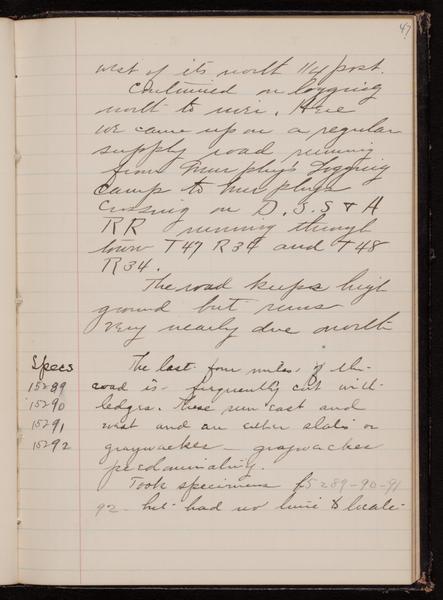 47
west of its north 1/4 post.
Continued on logging
north to river. Here
we came upon a regular
supply road running
from Murphy's Logging
Camp to Murphys
Crossing on D.S.S & A
RR running through
town T47 R34 and T48
R34.
The road keeps high
ground but runs
very nearly due north
Specs The last four miles of the
15289 road is frequently cut with
15290 ledges. These run east and
15291 west and are either slates or
15292 graywackes - graywackes
predominating.
Took specimens 15289-90-91
92 - but had no time to locate-